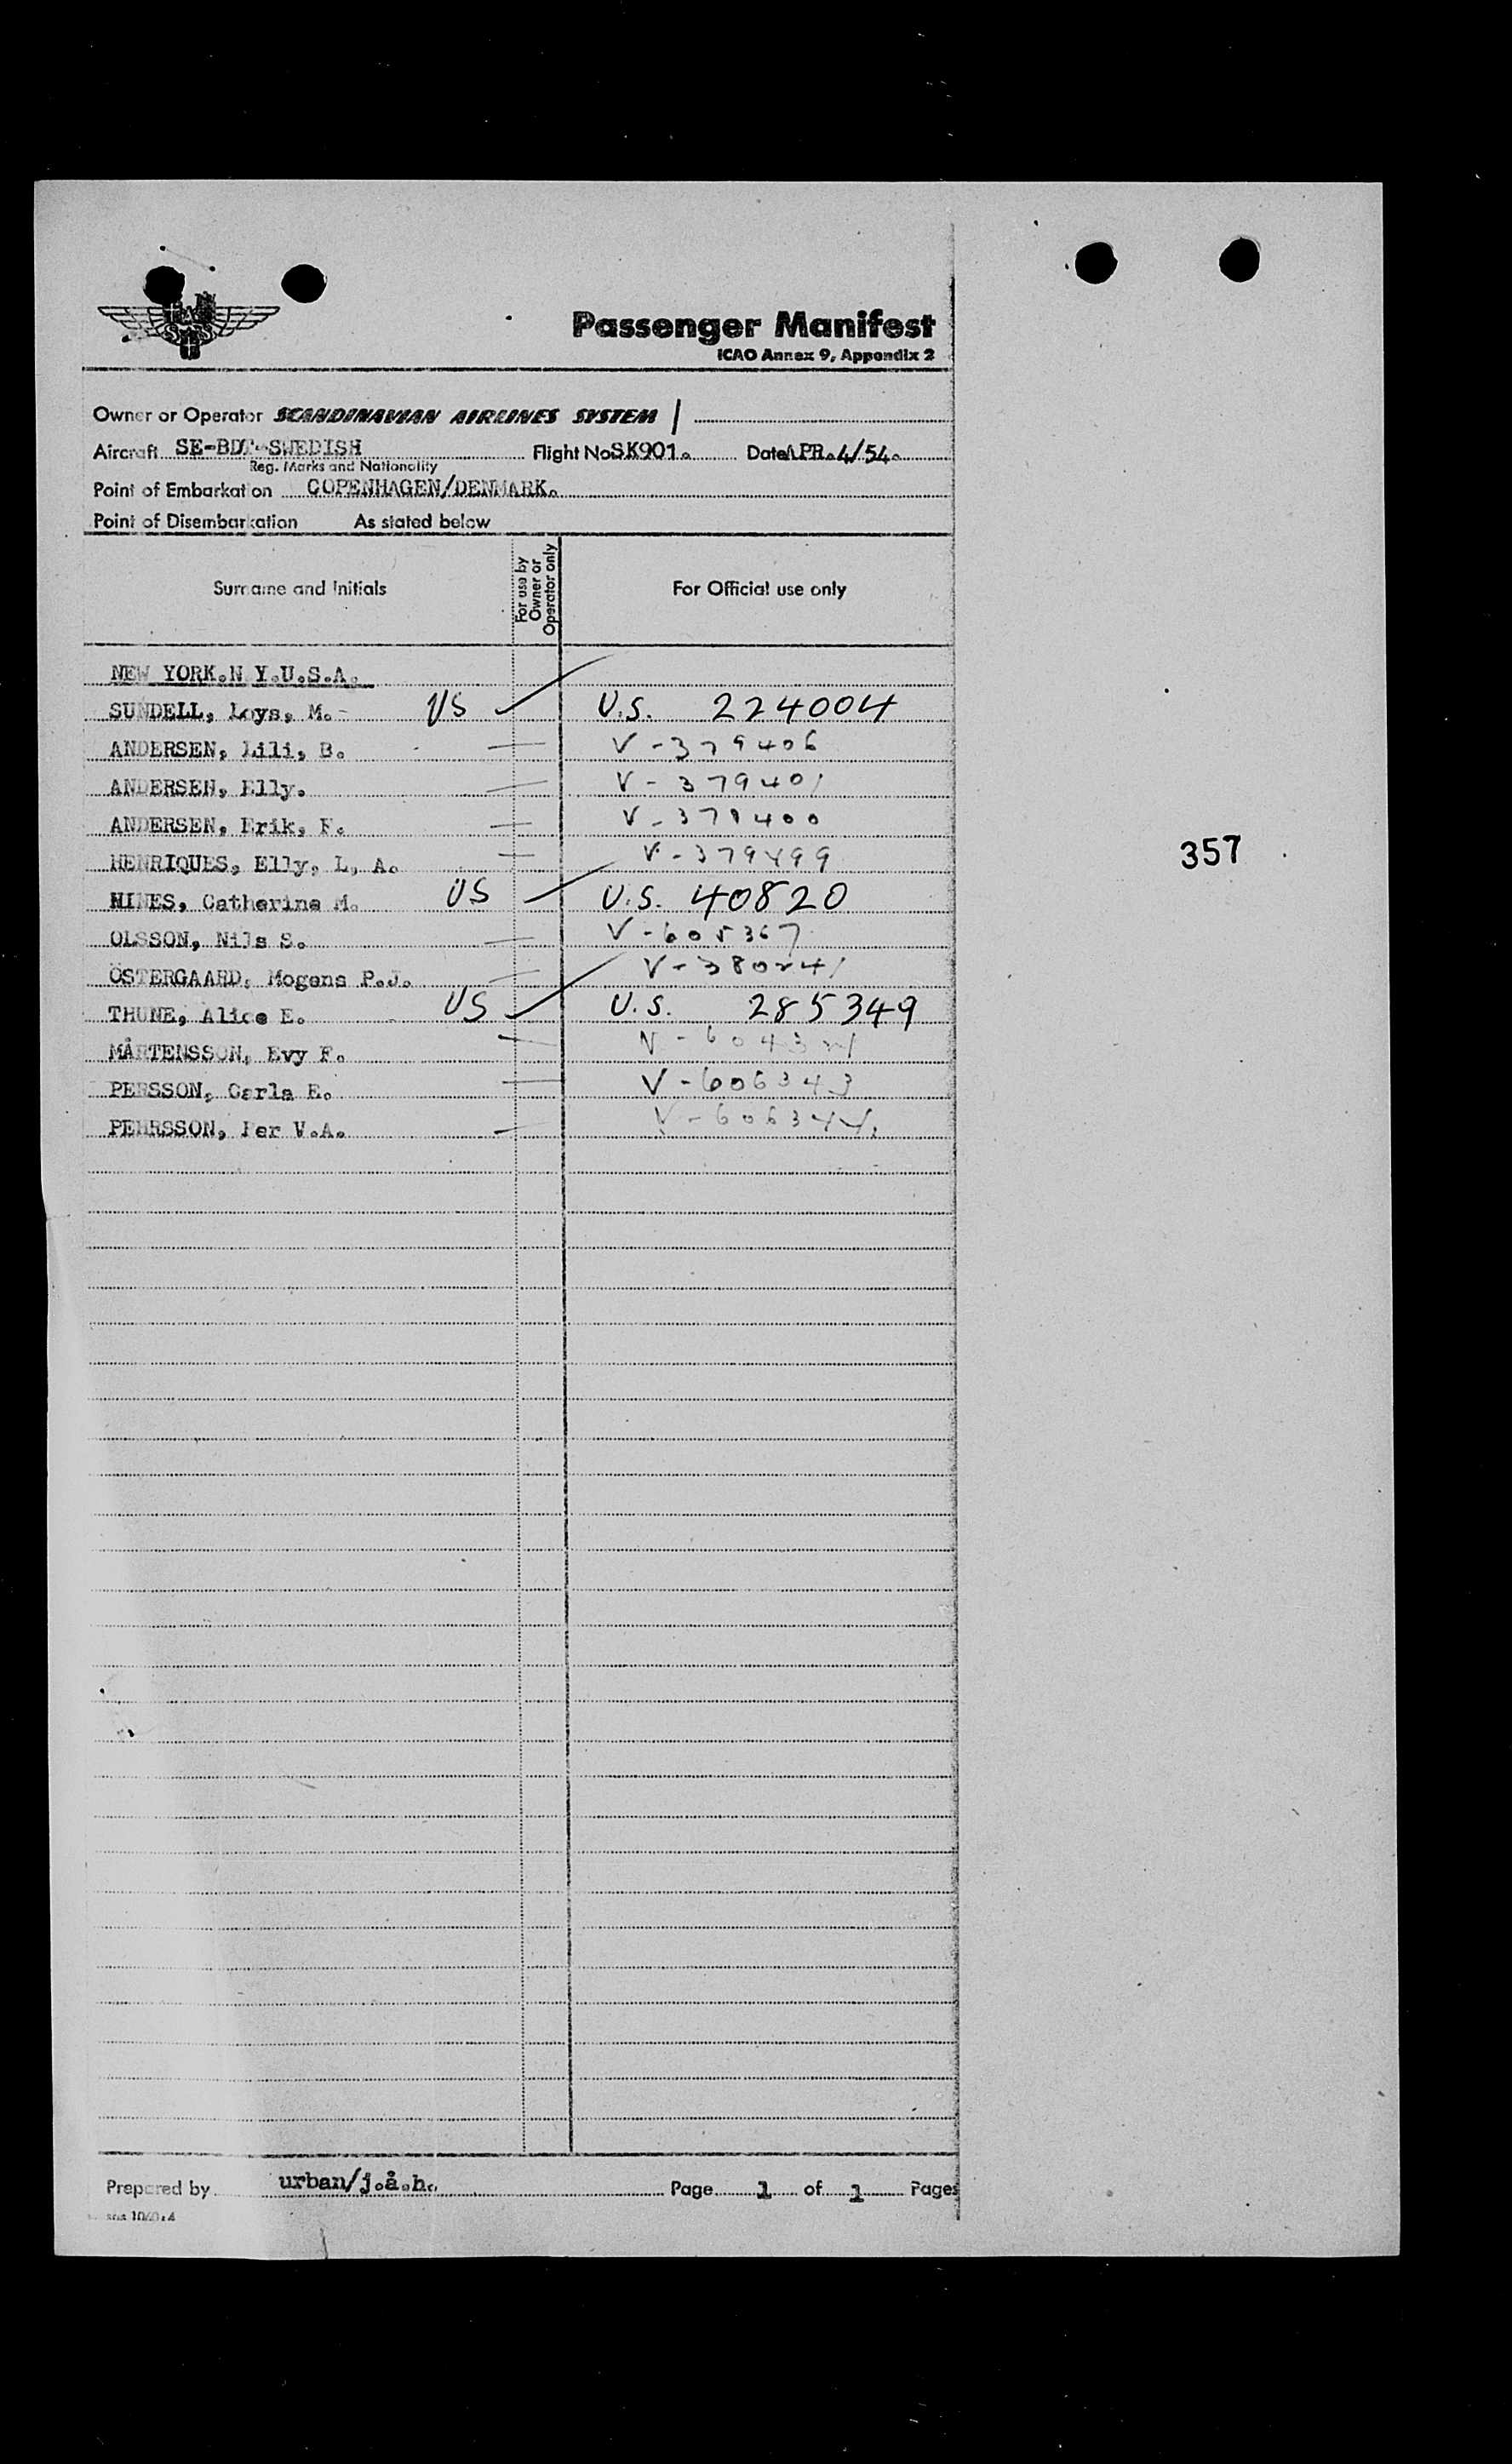 SAS
Passenger Manifest
ICAO Annex 9, Appendix 2
Owner or Operator SCANDINAVIAN AIRLINES SYSTEM
Aircraft SE-BDT-SWEDISH Flight No SK901. Date APR.4/54.
Reg. Marks and Nationality
Point of Embarkation COPENHAGEN/DENMARK.
Point of Disembarkation As stated below
Surname and Initials For use by Owner or Operator only For Official use only
NEW YORK.N Y.U.S.A.
SUNDELL, Loys, M.- US U.S. 224004
ANDERSEN, Lili, B. V-379406
ANDERSEN, Elly. V-379401
ANDERSEN, Erik, F. V-379400
HENRIQUES, Elly, L, A. V-379499
HINES, Catherine M. US U.S. 40820
OLSSON, Nils S. V-605367
ÖSTERGAARD, Mogens P.J. V-380241
THUNE, Alice E. US U.S. 285349
MÅRTENSSON, Evy F.
PERSSON, Carla E. V-606343
PEHRSSON, Per V.A. V-606344.
357
Prepared by urban/j.å.h. Page 1 of 1 Pages